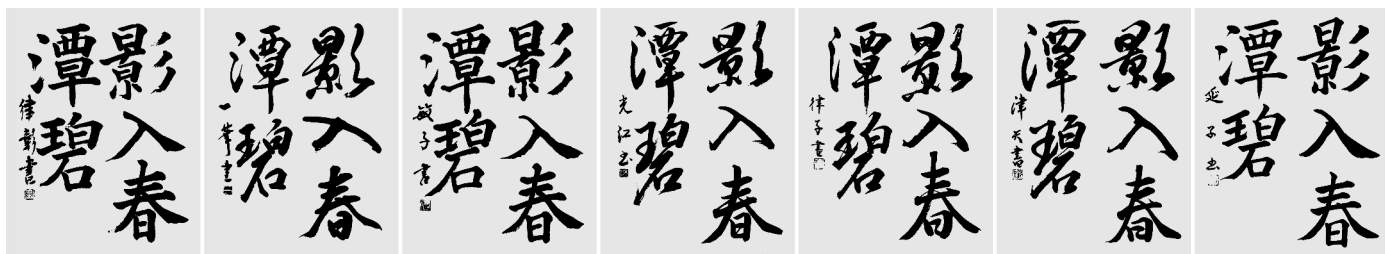 影入春
潭碧
影入春
潭碧
影入春
潭碧
敏子書
影入春
潭碧
光江书
影入春
潭碧
律子書
影入春
潭碧
影入春
潭碧
延子书